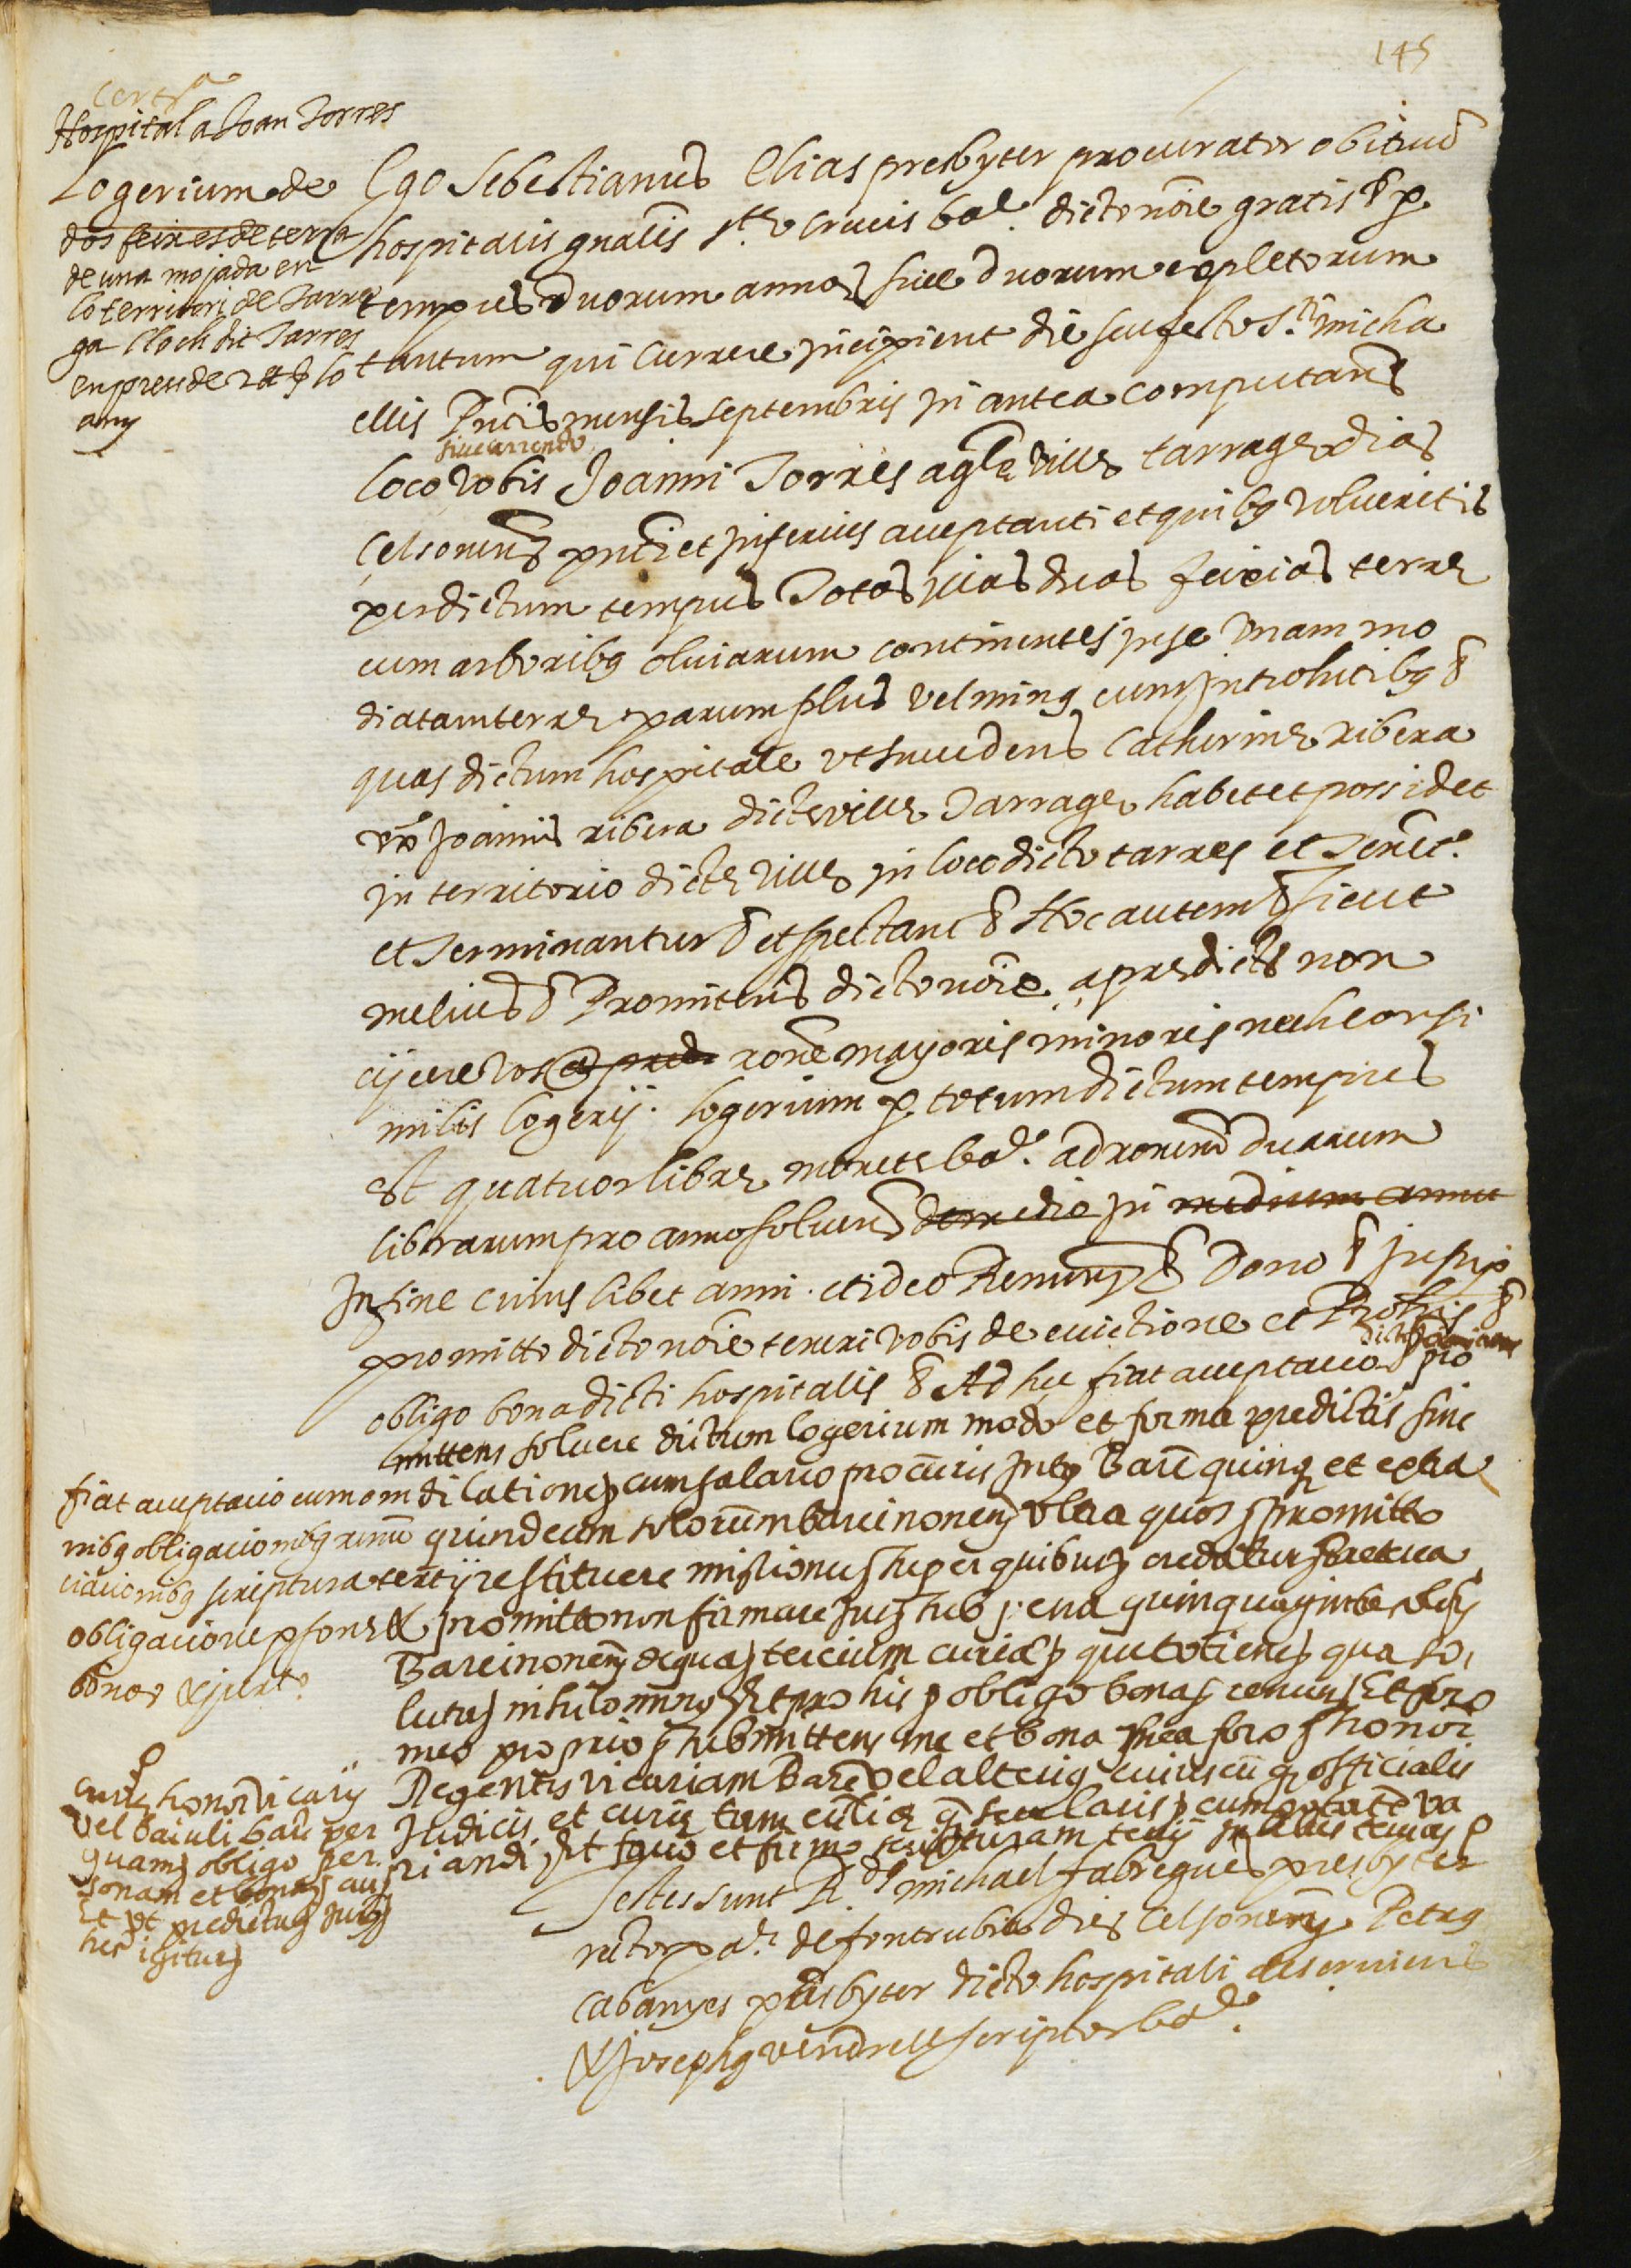 145
certa
Hospital a Joan Torres
Logerium de
dos feixes de terra
de una mojada en
lo territori de Tarre
ga lloch dit Tarres
en preu de 2 ll lo
any
Ego Sebestianus Elias presbyter procurator obituū
hospitalis gnālis Ste Crucis bar. dicto noīe gratis &c per
tempus duorum annoȝ sive duorum expletorum
tantum qui currere incipient die seu festo Sti micha
ellis pntis mensis septembris in antea computand
sive arrendo
loco vobis Joanni Torres agle ville tarrage dioc
Celsonen pnti et inferius acceptanti et quibq volueritis
per dictum tempus Totas illas duas feixias terre
cum arboribq olivarum continentes in se unam mo
diatam terre parum plus vel minq cum introhitibq &c
quas dictum hospitale ut succedens Catherine ribera
uxō Joannis ribera dicte ville Tarrage habet et possidet
in territorio dicte ville in loco dicto tarres et Tenet.
et Terminantur &c et spectant &c Hoc autem &c sicut
melius &c Promitens dicto noīe a predicts non
eijcere vos a pred rone mayoris minoris nech consi
milis logerij. logerium per totum dictum tempus
est quatuor libre monete bar. ad rōnem duarum
librarum pro anno solvend de medio in medium annu
In fine cuius libet anni. et ideo Renunt &c Dono &c insup
promitto dicto noīe teneri vobis de evictione et Prohis &c
obligo bona dicti hospitalis &c Ad hec fiat acceptacio pro
mittens solvere dictum logerium modo et forma predictis sine
dilatione cum salario procuris intq Barē quinq et extra
quindecim solorum barcinonen ultra quos promitto
restituere missiones super quibus credatur
promitto non firmare jus sub pena quinquaginta sol
Barcinonen de qua tercium curie que totiens qua so
lutus nihilominus Et pro his obligo bona renunt Et foro
meo proprio submittens me et bona mea foro honor
Regentis vicariam Barē vel alterius cuiuscuq officialis
Judicis et curie tam eccle q seclaris cum potate va
riandi Et facio et firmo scripturam tercij in libris tercior
fiat acceptacio cum om
nibq obligacionibq renun
ciacionibq scriptura tertij
obligacione psone &
bonor & jurt.
curie honor vicarij
vel baiuli bar per
quam obligo per
sonam et bona
Et ut predicta
hec igitur
Testes sunt Rds michael fabregues presbyter
rector pal. de fontrubia dioc Celsonen Petrq
cabanyes presbyter dicto hospitali deserviens
& Josephq vendrell scriptor bar.